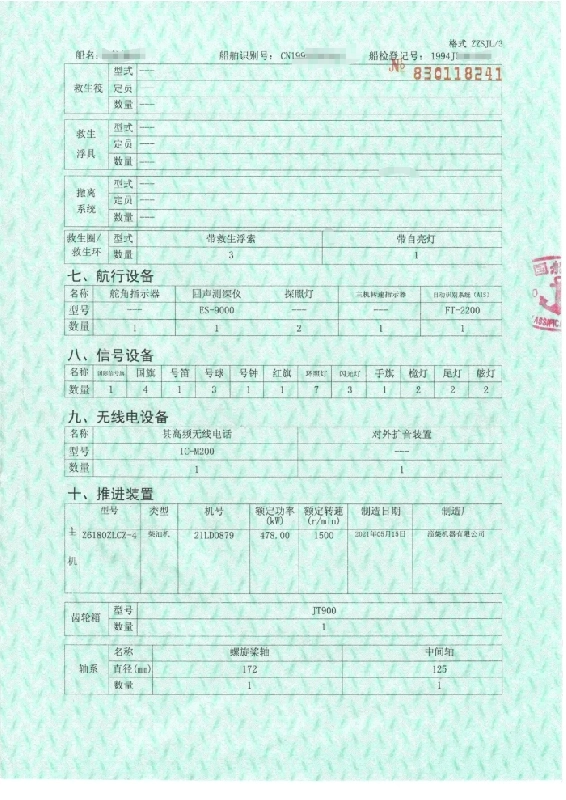 格式 ZZSJL/3
船名: 船舶识别号: CN199 船检登记号: 1994J
№ 830118241
救生筏 型式 ---
定员 ---
数量 ---
救生浮具 型式 ---
定员 ---
数量 ---
撤离系统 型式 ---
定员 ---
数量 ---
救生圈/救生环 型式 带救生浮索 带自亮灯
数量 3 1
七、航行设备
名称 舵角指示器 回声测深仪 探照灯 主机转速指示器 自动识别系统 (AIS)
型号 --- ES-9000 --- --- FT-2200
数量 1 1 2 1 1
八、信号设备
名称 国旗 号笛 号球 号钟 红旗 环照灯 闪光灯 手旗 桅灯 尾灯 舷灯
数量 1 4 1 3 1 1 7 3 1 2 2 2
九、无线电设备
名称 甚高频无线电话 对外扩音装置
型号 IC-M200 ---
数量 1 1
十、推进装置
主机 型号 类型 机号 额定功率(kW) 额定转速(r/min) 制造日期 制造厂
Z6180ZLCZ-4 柴油机 21LD0879 478.00 1500 淄柴机器有限公司
齿轮箱 型号 JT900
数量 1
轴系 名称 螺旋桨轴 中间轴
直径(mm) 172 125
数量 1 1